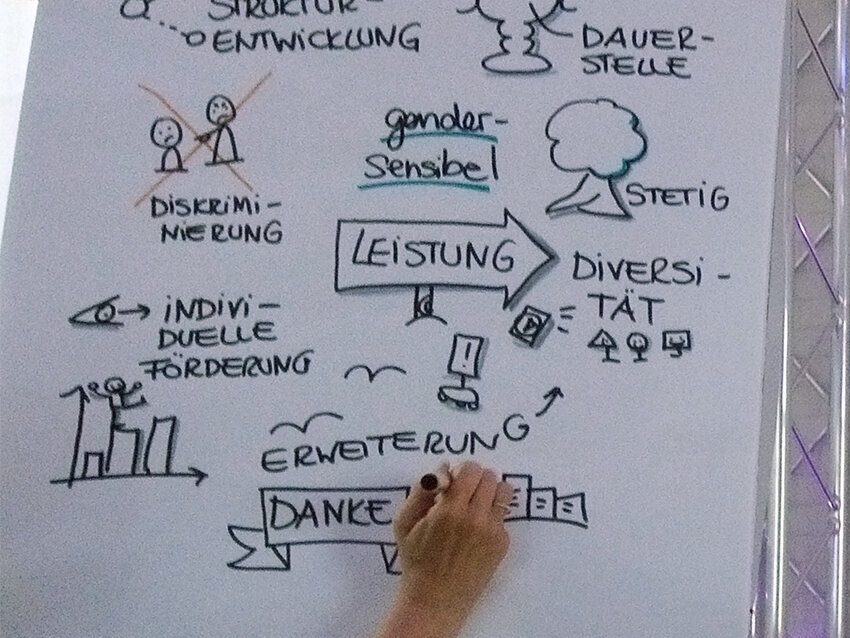 STRUKTUR-
ENTWICKLUNG
DAUER-
STELLE
gender-
Sensibel
STETIG
DISKRIMI-
NIERUNG
LEISTUNG
DIVERSI-
TÄT
INDIVI-
DUELLE
FÖRDERUNG
!
ERWEITERUNG
DANKE